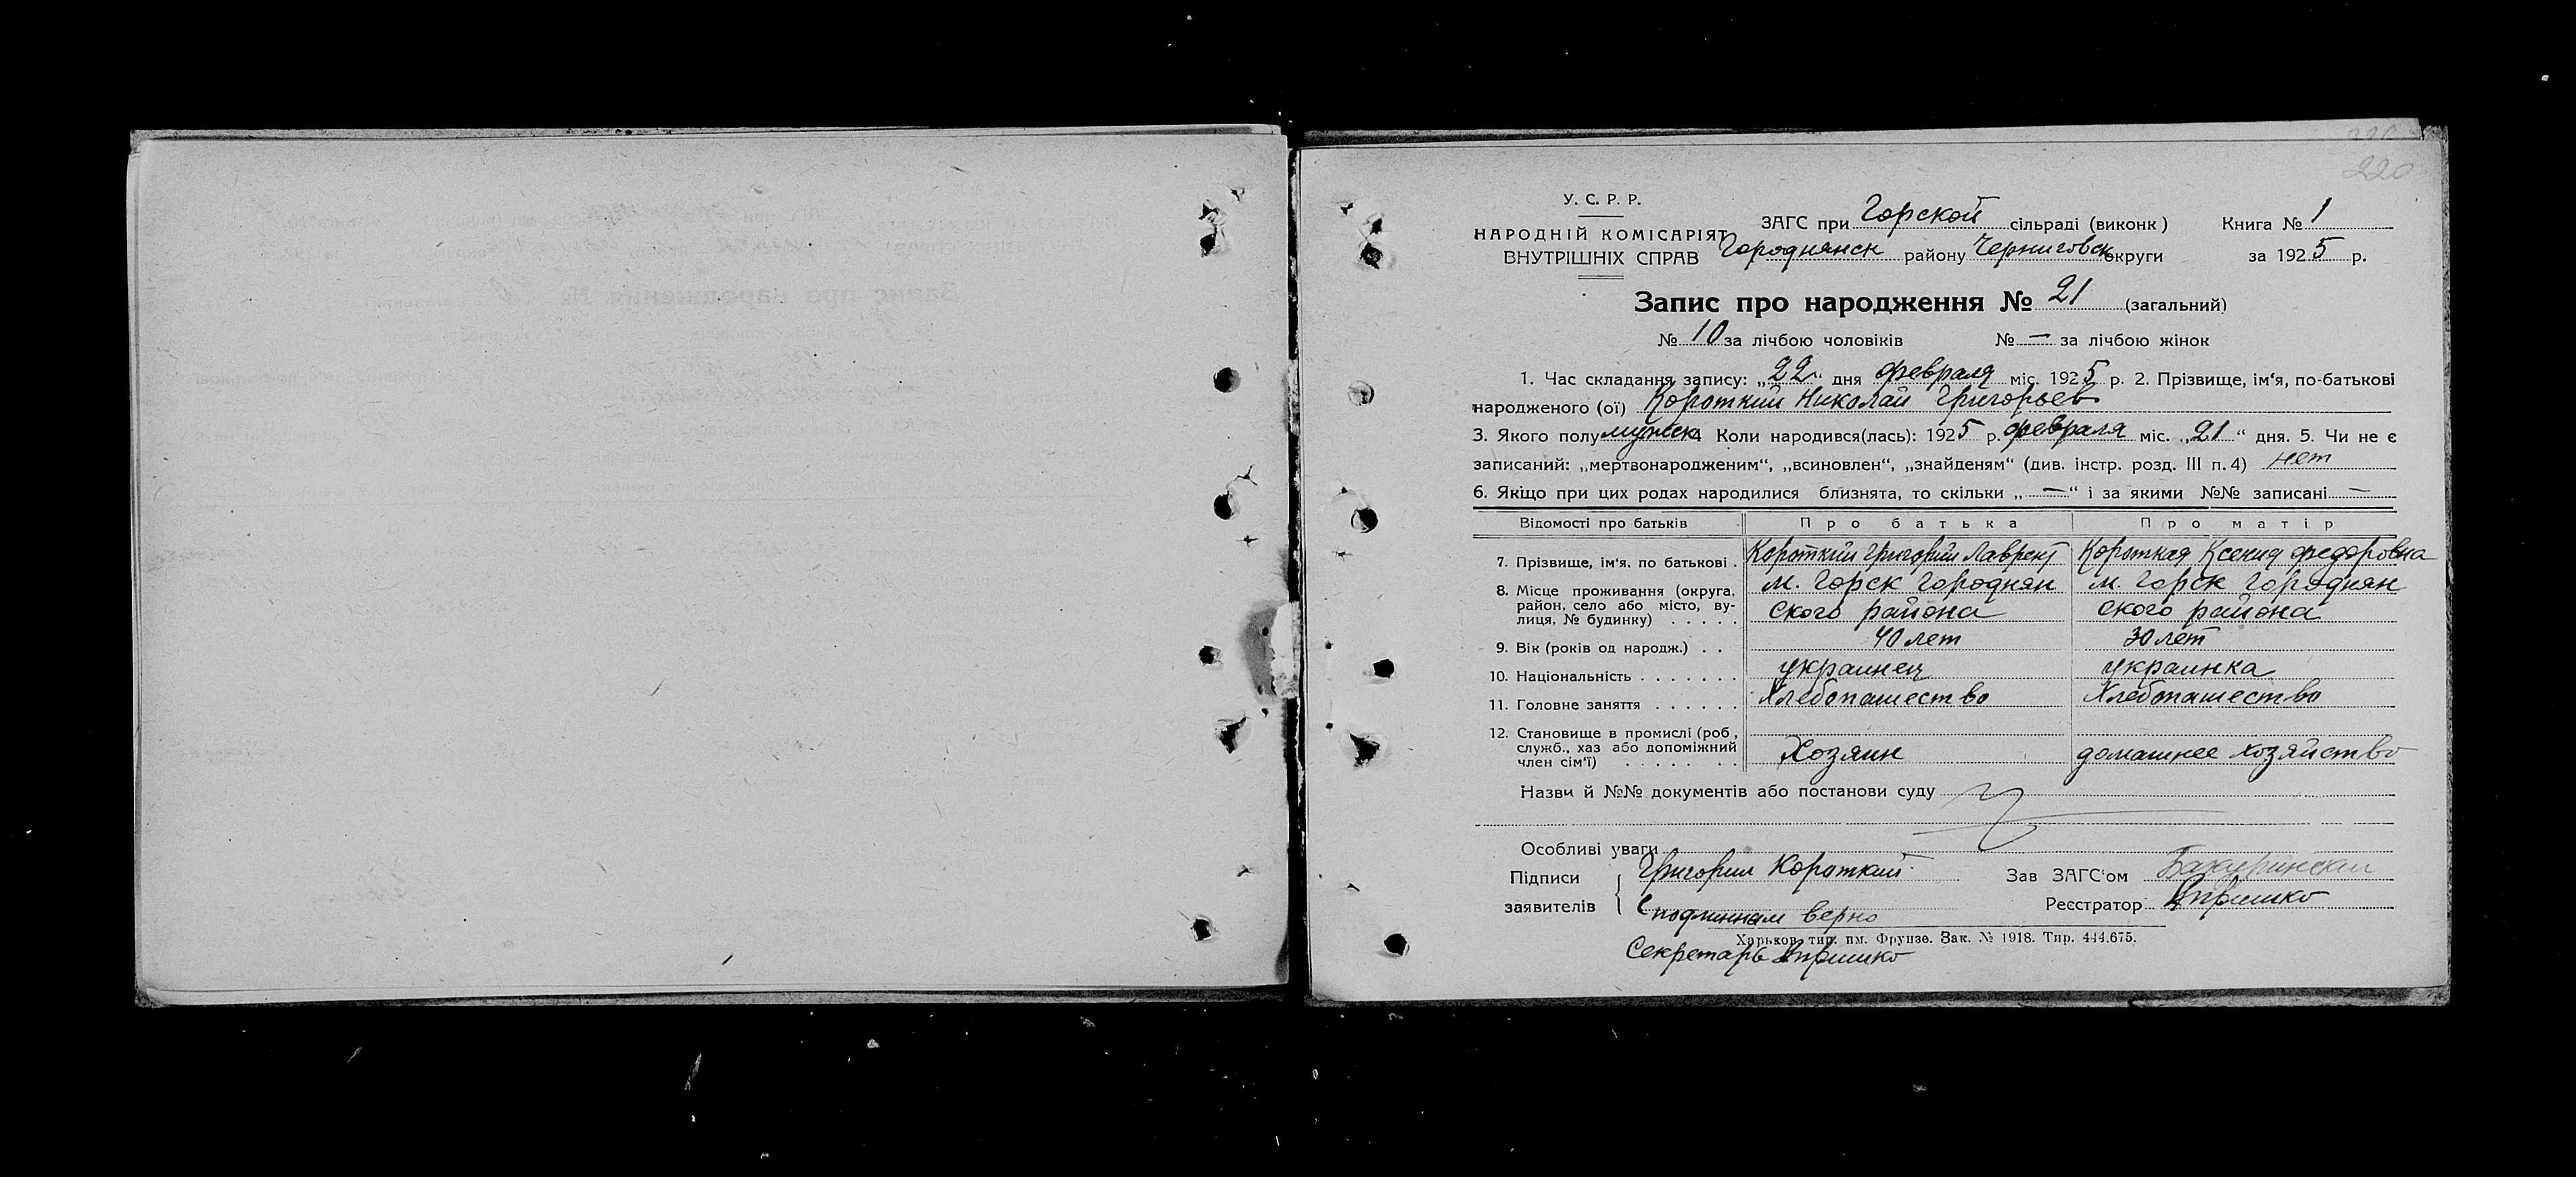 220
У. С. Р. Р.
НАРОДНІЙ КОМІСАРІЯТ
ВНУТРІШНІХ СПРАВ
ЗАГС при Горской сільраді (виконк) Книга № 1
Городнянск району Черниговск округи за 1925 р.
Запис про народження № 21 (загальний)
№ 10 за лічбою чоловіків № — за лічбою жінок
1. Час складання запису: „22“ дня февраля міс. 1925 р. 2. Прізвище, ім‘я, по-батькові
народженого (ої) Короткий Николай Григорьев
3. Якого полу мужск 4 Коли народився(лась): 1925 р. февраля міс. „21“ дня. 5. Чи не є
записаний: „мертвонародженим“, „всиновлен“, „знайденям“ (див. інстр. розд. III п. 4) нет
6. Якщо при цих родах народилися близнята, то скільки „—“ і за якими №№ записані —
Відомості про батьків Про батька Про матір
7. Прізвище, ім‘я. по батькові . Короткий Григорий Лаврент Короткая Ксения Федоровна
8. Місце проживання (округа, район, село або місто, вулиця, № будинку) . . . . . м. Горск Городнян м. Горск Городнян
ского района ского района
9. Вік (років од народж.) . . 40 лет 30 лет
10. Національність . . . . . . . украинец украинка
11. Головне заняття . . . . . . Хлебопашество Хлебопашество
12. Становище в промислі (роб., служб., хаз або допоміжний член сім‘ї) . . . . . . . Хозяин домашнее хозяйство
Назви й №№ документів або постанови суду
Особливі уваги
Підписи заявителів Григорий Короткий
Зав ЗАГС‘ом
Реєстратор
С подлинным верно
Харьков, тип. им. Фрунзе. Зак. № 1918. Тир. 444.675.
Секретарь